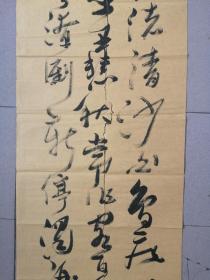 渚清沙白鸟飛
里悲秋常作客百
潦倒新停濁